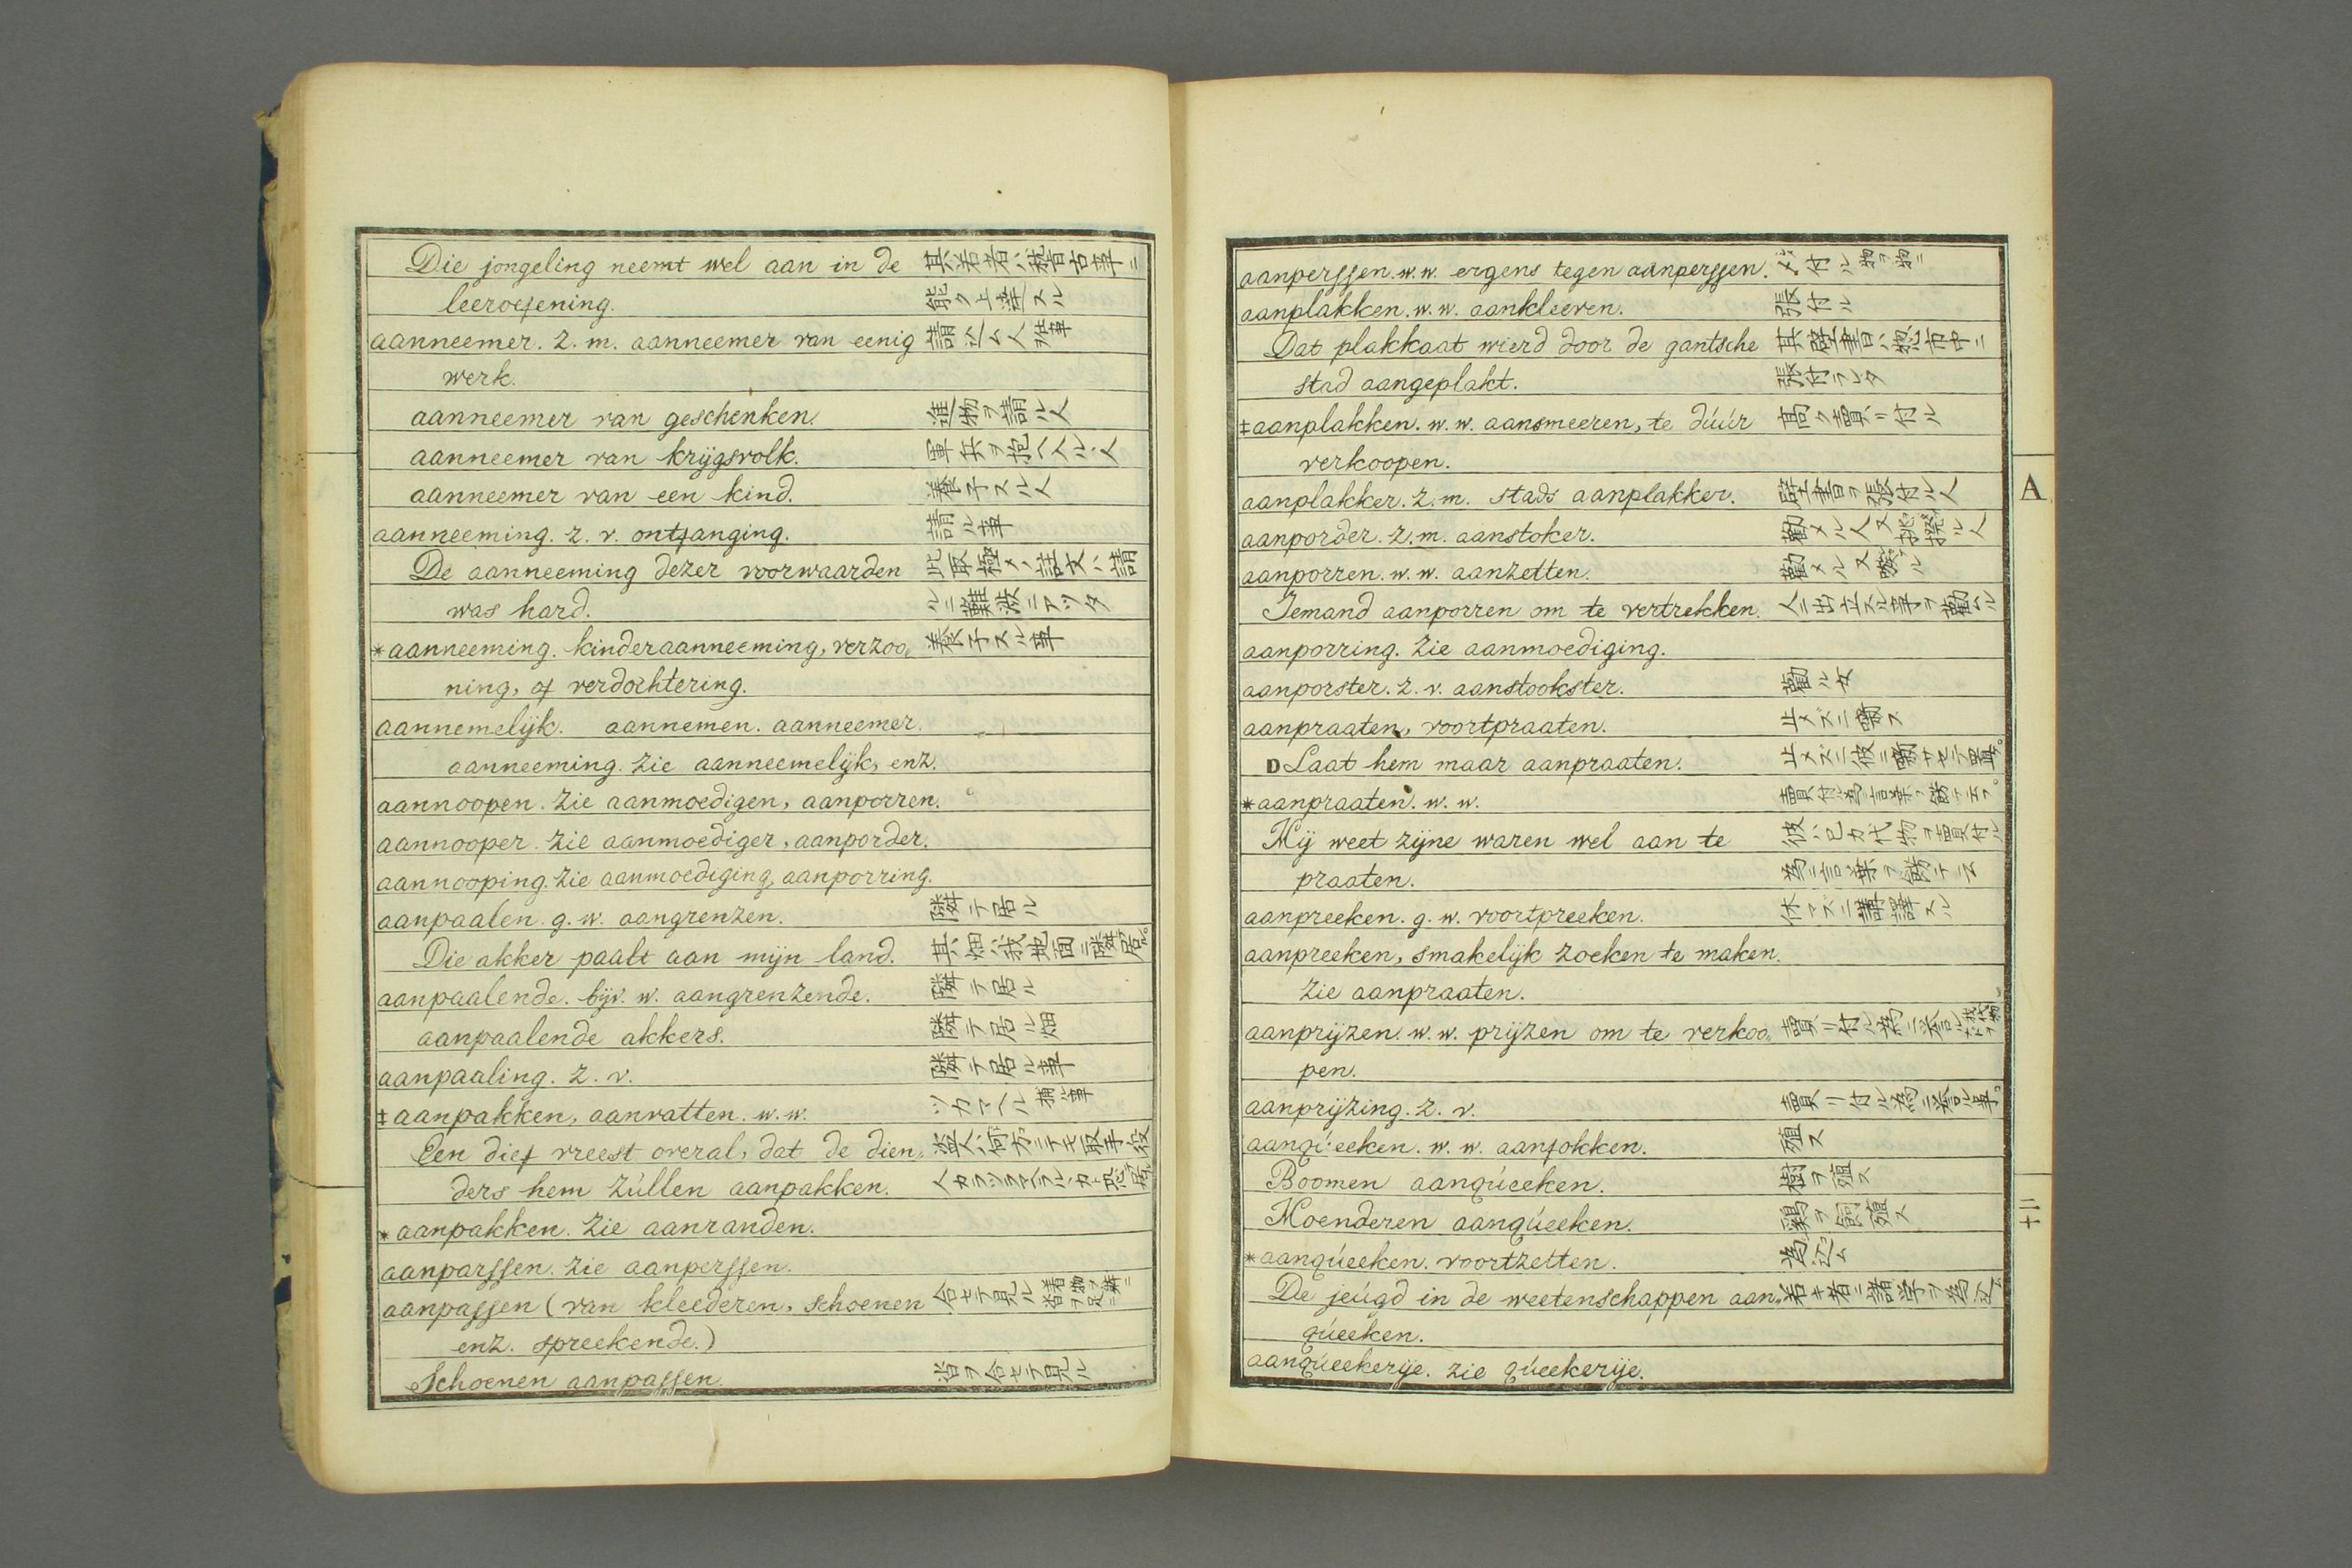 Die jongeling neemt wel aan in de 其若者ハ稽古事ニ
leeroefening. 能ク上達スル
aanneemer. z. m. aanneemer van eenig 請込ム人
werk.
aanneemer van geschenken. 進物ヲ請ル人
aanneemer van krijgsvolk. 軍兵ヲ抱ヘ入ル人
aanneemer van een kind. 養子スル人
aanneeming. z. v. ontfanging. 請ル事
De aanneeming dezer voorwaarden 此取極メノ證文ハ請
was hard. ルニ難渋ニアツタ
*aanneeming. kinderaanneeming, verzoo„ 養子スル事
ning, of verdochtering.
aannemelijk. aannemen. aanneemer.
aanneeming. zie aanneemelijk, enz.
aannoopen. zie aanmoedigen, aanporren.
aannooper. zie aanmoediger, aanporder.
aannooping. zie aanmoediging, aanporring.
aanpaalen. g. w. aangrenzen. 隣テ居ル
Die akker paalt aan mijn land. 其畑ハ我地面ニ隣テ居ル
aanpaalende. bijv. w. aangrenzende. 隣テ居ル
aanpaalende akkers. 隣テ居ル畑
aanpaaling. z. v. 隣テ居ル事
‡aanpakken, aanvatten. w. w. ツカマヘル
Een dief vreest overal, dat de dien„ 盗人ハ何方ニテモ取手ノ役
ders hem zúllen aanpakken.
*aanpakken. zie aanranden.
aanparssen. zie aanperssen.
aanpassen (van kleederen, schoenen 合セテ見ル
enz. spreekende.)
Schoenen aanpassen. 沓ヲ合セテ見ル
aanperssen. w. w. ergens tegen aanperssen. 〆付ル物ヲ物ニ
aanplakken. w. w. aankleeven. 張付ル
Dat plakkaat wierd door de gantsche 其壁書ハ惣市中ニ
stad aangeplakt. 張付ラレタ
‡aanplakken. w. w. aansmeeren, te dúúr 高ク賣リ付ル
verkoopen.
aanplakker. z. m. stads aanplakker. 壁書ヲ張付ル人
aanporder. z. m. aanstoker. 勸メル人又挑撥ル人
aanporren. w. w. aanzetten. 勸メル又
Iemand aanporren om te vertrekken. 人ニ出立スル事ヲ勸ムル
aanporring. zie aanmoediging.
aanporster. z. v. aanstookster. 勸ル女
aanpraaten, voortpraaten. 止メズニ噺ス
D Laat hem maar aanpraaten. 止メズニ彼ニ噺サセテ置
*aanpraaten. w. w. 賣付ル為ニ言葉ヲ飾テ云フ
Hij weet zijne waren wel aan te 彼ハ己カ代物ヲ賣付ル
praaten. 為ニ言葉ヲ飾テ云
aanpreeken. g. w. voortpreeken. 休マズニ講譯スル
aanpreeken, smakelijk zoeken te maken.
zie aanpraaten.
aanprijzen. w. w. prijzen om te verkoo„ 賣リ付ル為ニ誉ル
pen.
aanprijzing. z. v. 賣リ付ル為ニ誉ル事
aanqúeeken. w. w. aanfokken. 殖ス
Boomen aanqúeeken. 樹ヲ殖ス
Hoenderen aanqúeeken. 鶏ヲ飼殖ス
*aanqúeeken. voortzetten. 為込ム
De jeúgd in de weetenschappen aan„ 若キ者ニ諸学ヲ為込ム
qúeeken.
aanqúeekerije. zie qúeekerije.
A
十二